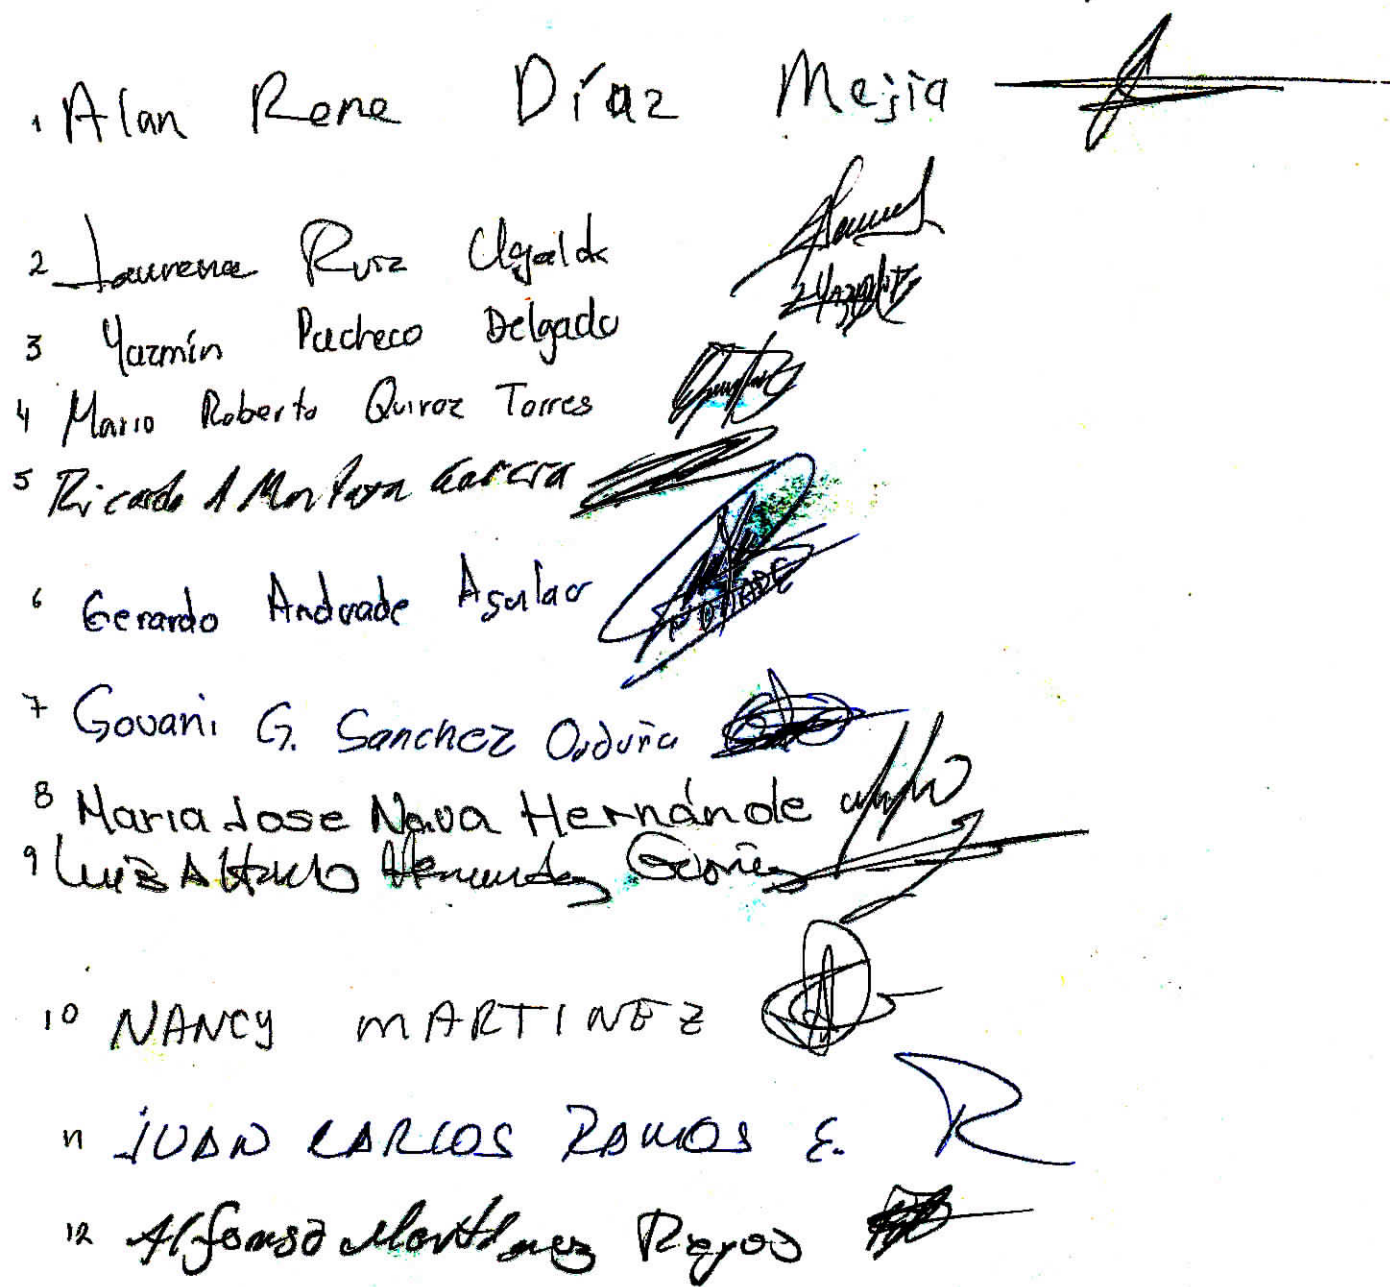 1 Alan Rene Díaz Mejia
2 Laurena Ruiz Ugalde
3 Yazmín Pacheco Delgado
4 Mario Roberto Quiroz Torres
5 Ricardo A Montoya Garcia
6 Gerardo Andrade Agular ANDRADE
7 Govani G. Sanchez Orduña
8 Maria Jose Nava Hernánde
9 Luis Hernandez
10 NANCY MARTINEZ
11 JUAN CARLOS RAMOS E.
12 Alfonso Martinez Reyes